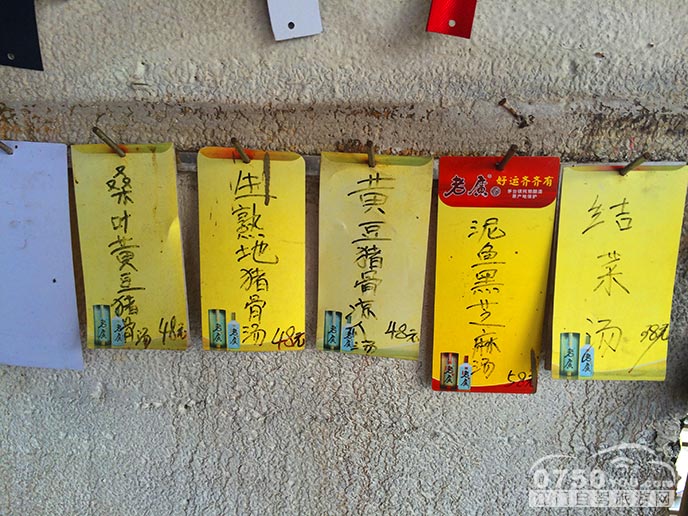 桑叶黄豆猪骨汤
48元
生熟地猪骨汤
48元
黄豆猪骨凉瓜汤
48元
老广
好运齐齐有
泥鱼黑芝麻汤
58元
结菜汤
38元
0750YOU.com
自驾旅游网